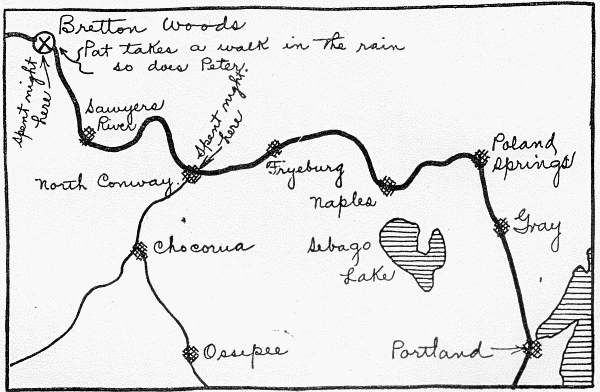 Bretton Woods
Pat takes a walk in the rain
so does Peter.
Spent night
here
Sawyers
River
Spent night.
here
North Conway.
Fryeburg
Naples
Poland
Springs
Gray
Sebago
Lake
Chocorua
Ossipee
Portland